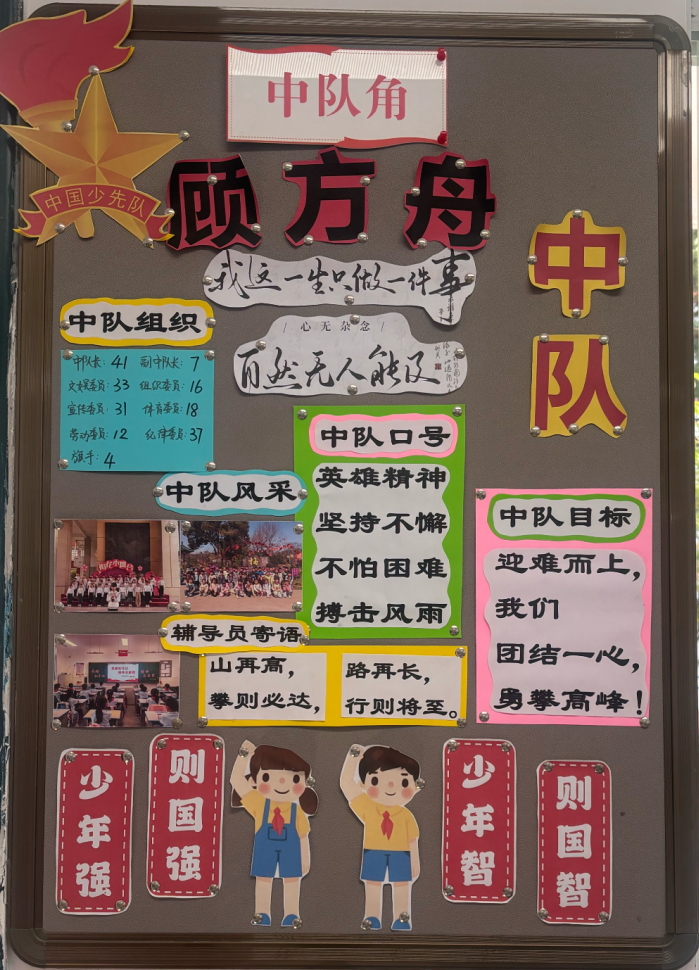 中队角
中国少先队
顾方舟
中队
我这一生只做一件事
心无杂念
自然无人能及
中队组织
中队长：41 副中队长：7
文娱委员：33 组织委员：16
宣传委员：31 体育委员：18
劳动委员：12 纪律委员：37
旗手：4
中队口号
英雄精神
坚持不懈
不怕困难
搏击风雨
中队风采
中队目标
迎难而上，
我们
团结一心，
勇攀高峰！
辅导员寄语
山再高，
攀则必达，
路再长，
行则将至。
少年强
则国强
少年智
则国智